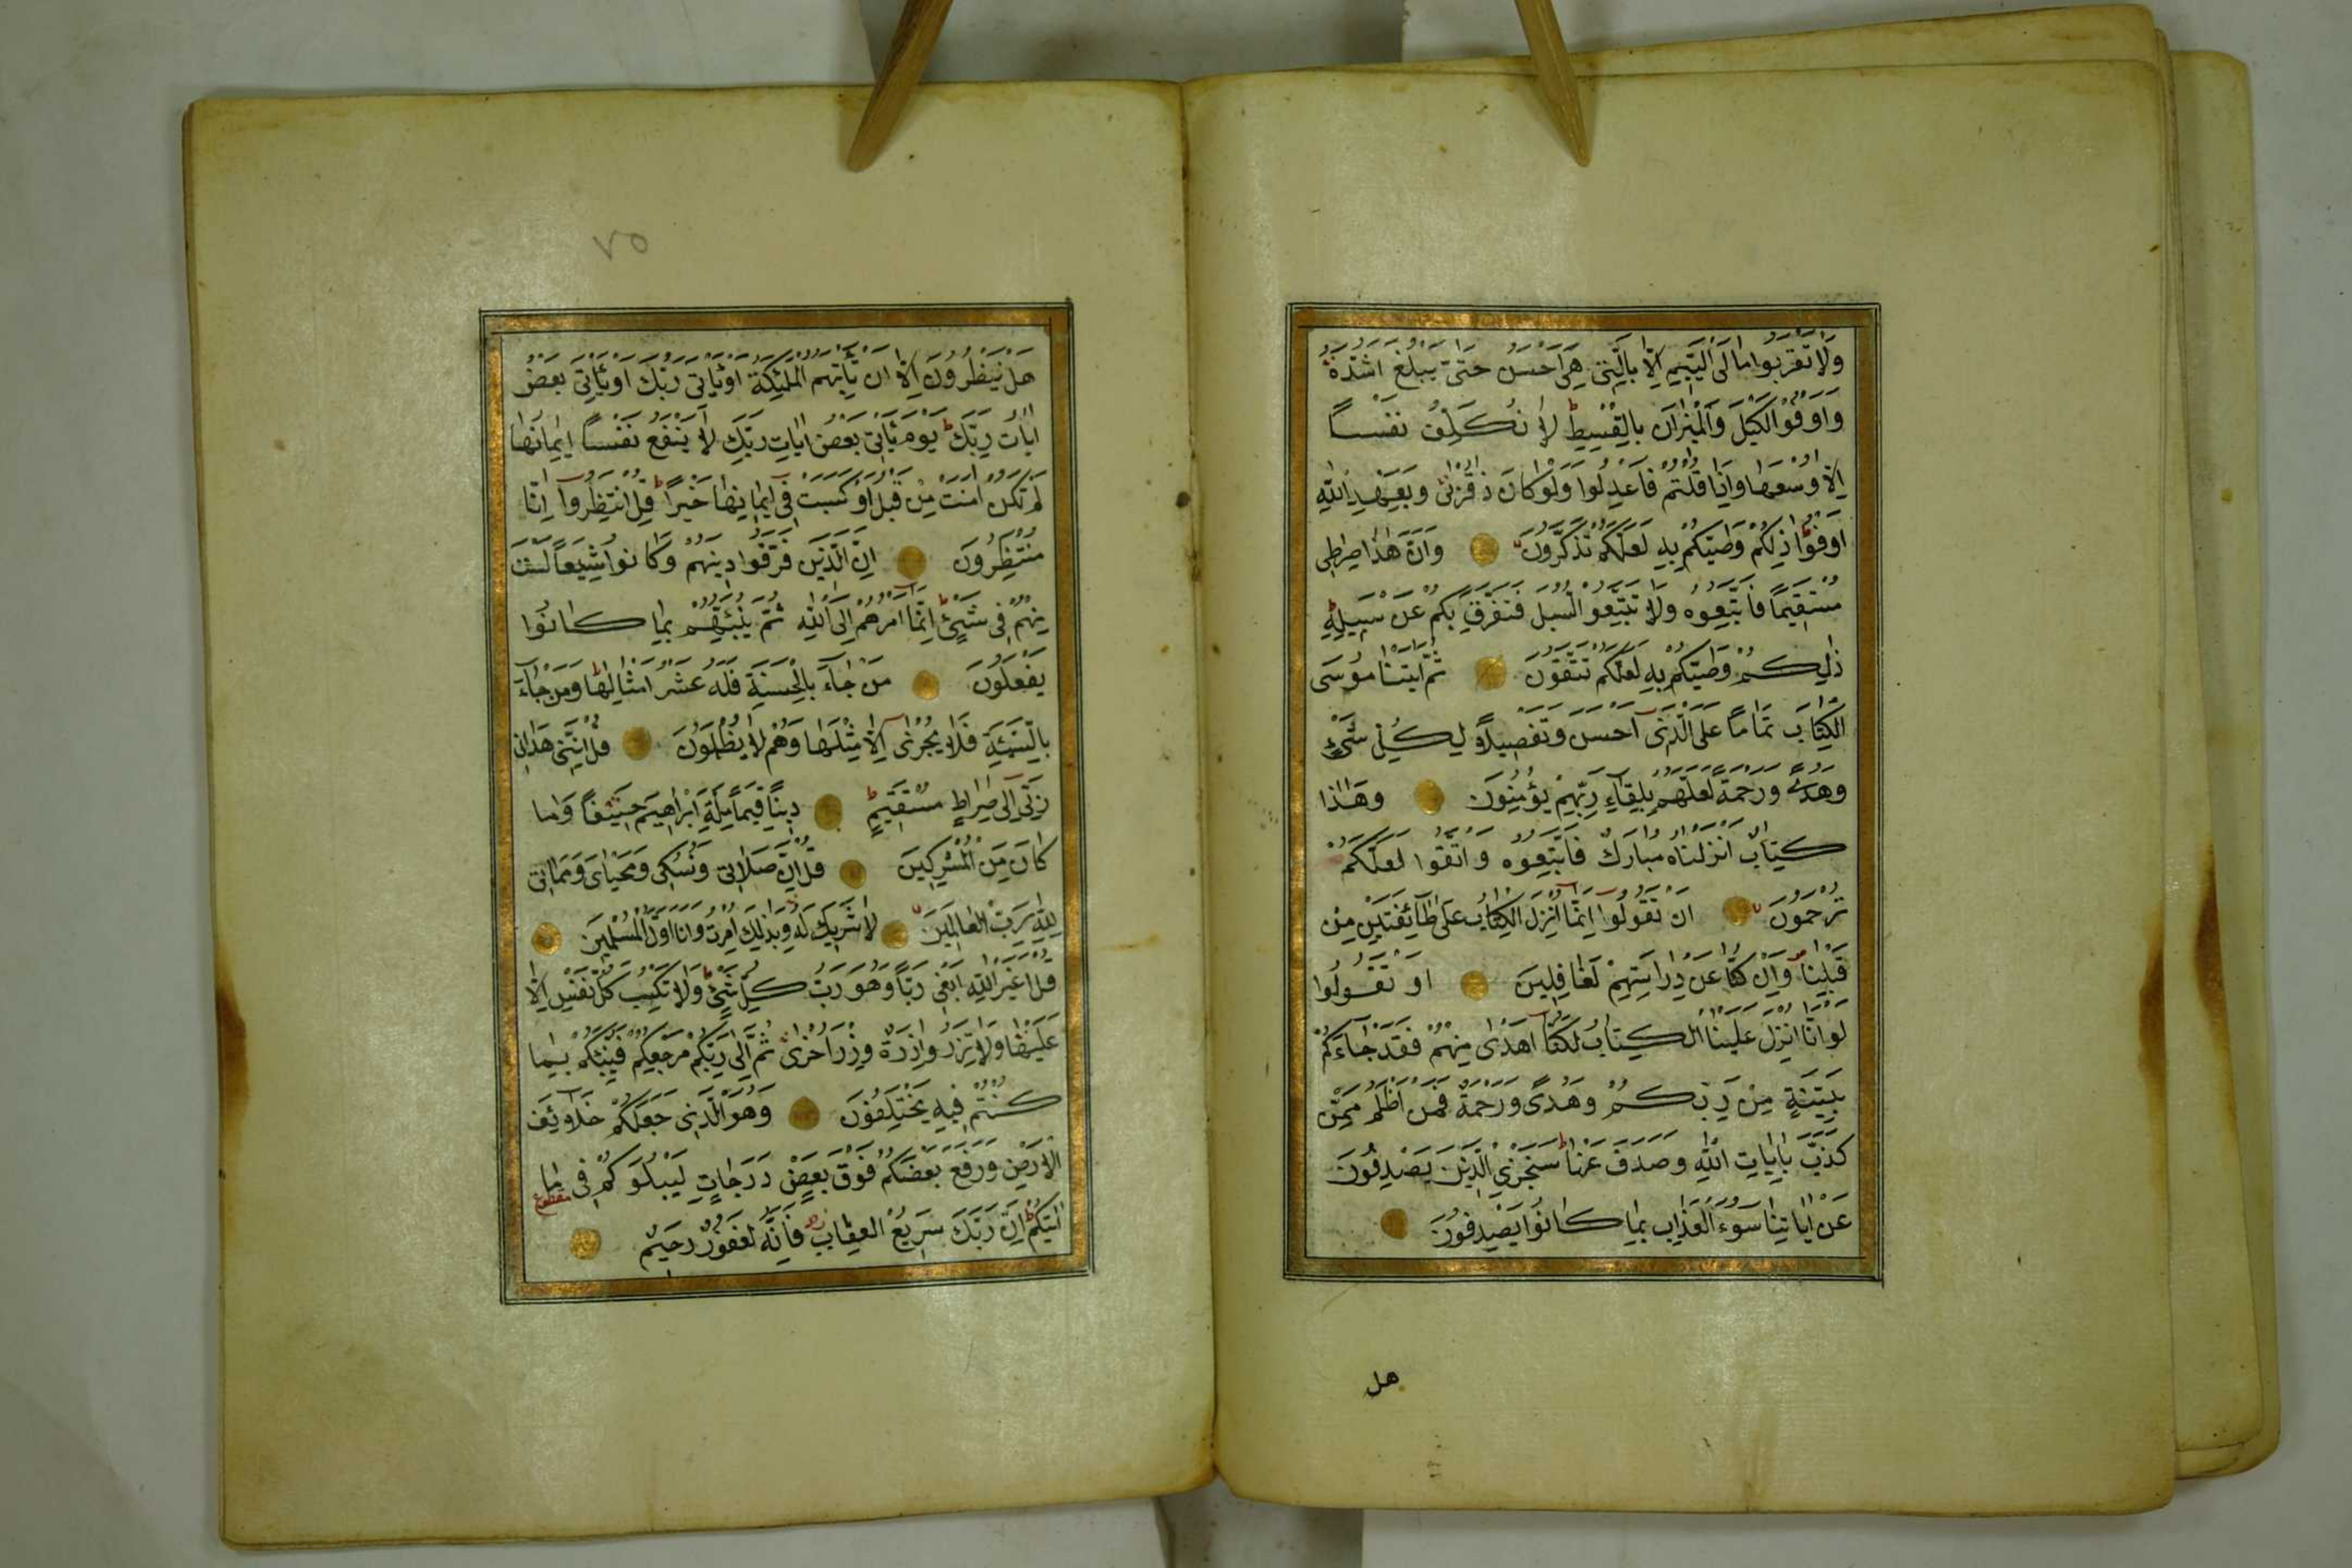 وَلَا تَقْرَبُوا مَالَ الْيَتِيمِ إِلَّا بِالَّتِي هِيَ أَحْسَنُ حَتَّى يَبْلُغَ أَشُدَّهُ
وَأَوْفُوا الْكَيْلَ وَالْمِيزَانَ بِالْقِسْطِ لَا نُكَلِّفُ نَفْسًا
إِلَّا وُسْعَهَا وَإِذَا قُلْتُمْ فَاعْدِلُوا وَلَوْ كَانَ ذَا قُرْبَى وَبِعَهْدِ اللَّهِ
أَوْفُوا ذَلِكُمْ وَصَّيكُمْ بِهِ لَعَلَّكُمْ تَذَكَّرُونَ وَأَنَّ هَذَا صِرَاطِي
مُسْتَقِيمًا فَاتَّبِعُوهُ وَلَا تَتَّبِعُوا السُّبُلَ فَتَفَرَّقَ بِكُمْ عَنْ سَبِيلِهِ
ذَلِكُمْ وَصَّيكُمْ بِهِ لَعَلَّكُمْ تَتَّقُونَ ثُمَّ آتَيْنَا مُوسَى
الْكِتَابَ تَمَامًا عَلَى الَّذِي أَحْسَنَ وَتَفْصِيلًا لِكُلِّ شَيْءٍ
وَهُدًى وَرَحْمَةً لَعَلَّهُمْ بِلِقَاءِ رَبِّهِمْ يُؤْمِنُونَ وَهَذَا
كِتَابٌ أَنْزَلْنَاهُ مُبَارَكٌ فَاتَّبِعُوهُ وَاتَّقُوا لَعَلَّكُمْ
تُرْحَمُونَ أَنْ تَقُولُوا إِنَّمَا أُنْزِلَ الْكِتَابُ عَلَى طَائِفَتَيْنِ مِنْ
قَبْلِنَا وَإِنْ كُنَّا عَنْ دِرَاسَتِهِمْ لَغَافِلِينَ أَوْ تَقُولُوا
لَوْ أَنَّا أُنْزِلَ عَلَيْنَا الْكِتَابُ لَكُنَّا أَهْدَى مِنْهُمْ فَقَدْ جَاءَكُمْ
بَيِّنَةٌ مِنْ رَبِّكُمْ وَهُدًى وَرَحْمَةٌ فَمَنْ أَظْلَمُ مِمَّنْ
كَذَّبَ بِآيَاتِ اللَّهِ وَصَدَفَ عَنْهَا سَنَجْزِي الَّذِينَ يَصْدِفُونَ
عَنْ آيَاتِنَا سُوءَ الْعَذَابِ بِمَا كَانُوا يَصْدِفُونَ
هل
٧٥
هَلْ يَنْظُرُونَ إِلَّا أَنْ تَأْتِيَهُمُ الْمَلٰئِكَةُ أَوْ يَأْتِيَ رَبُّكَ أَوْ يَأْتِيَ بَعْضُ
آيَاتِ رَبِّكَ يَوْمَ يَأْتِي بَعْضُ آيَاتِ رَبِّكَ لَا يَنْفَعُ نَفْسًا إِيمَانُهَا
لَمْ تَكُنْ آمَنَتْ مِنْ قَبْلُ أَوْ كَسَبَتْ فِي إِيمَانِهَا خَيْرًا قُلِ انْتَظِرُوا إِنَّا
مُنْتَظِرُونَ إِنَّ الَّذِينَ فَرَّقُوا دِينَهُمْ وَكَانُوا شِيَعًا لَسْتَ
مِنْهُمْ فِي شَيْءٍ إِنَّمَا أَمْرُهُمْ إِلَى اللَّهِ ثُمَّ يُنَبِّئُهُمْ بِمَا كَانُوا
يَفْعَلُونَ مَنْ جَاءَ بِالْحَسَنَةِ فَلَهُ عَشْرُ أَمْثَالِهَا وَمَنْ جَاءَ
بِالسَّيِّئَةِ فَلَا يُجْزَى إِلَّا مِثْلَهَا وَهُمْ لَا يُظْلَمُونَ قُلْ إِنَّنِي هَدَانِي
رَبِّي إِلَى صِرَاطٍ مُسْتَقِيمٍ دِينًا قِيَمًا مِلَّةَ إِبْرَاهِيمَ حَنِيفًا وَمَا
كَانَ مِنَ الْمُشْرِكِينَ قُلْ إِنَّ صَلَاتِي وَنُسُكِي وَمَحْيَايَ وَمَمَاتِي
لِلَّهِ رَبِّ الْعَالَمِينَ لَا شَرِيكَ لَهُ وَبِذَلِكَ أُمِرْتُ وَأَنَا أَوَّلُ الْمُسْلِمِينَ
قُلْ أَغَيْرَ اللَّهِ أَبْغِي رَبًّا وَهُوَ رَبُّ كُلِّ شَيْءٍ وَلَا تَكْسِبُ كُلُّ نَفْسٍ إِلَّا
عَلَيْهَا وَلَا تَزِرُ وَازِرَةٌ وِزْرَ أُخْرَى ثُمَّ إِلَى رَبِّكُمْ مَرْجِعُكُمْ فَيُنَبِّئُكُمْ بِمَا
كُنْتُمْ فِيهِ تَخْتَلِفُونَ وَهُوَ الَّذِي جَعَلَكُمْ خَلَائِفَ
الْأَرْضِ وَرَفَعَ بَعْضَكُمْ فَوْقَ بَعْضٍ دَرَجَاتٍ لِيَبْلُوَكُمْ فِي مَا
مقطوع
آتَيكُمْ إِنَّ رَبَّكَ سَرِيعُ الْعِقَابِ فَإِنَّهُ لَغَفُورٌ رَحِيمٌ